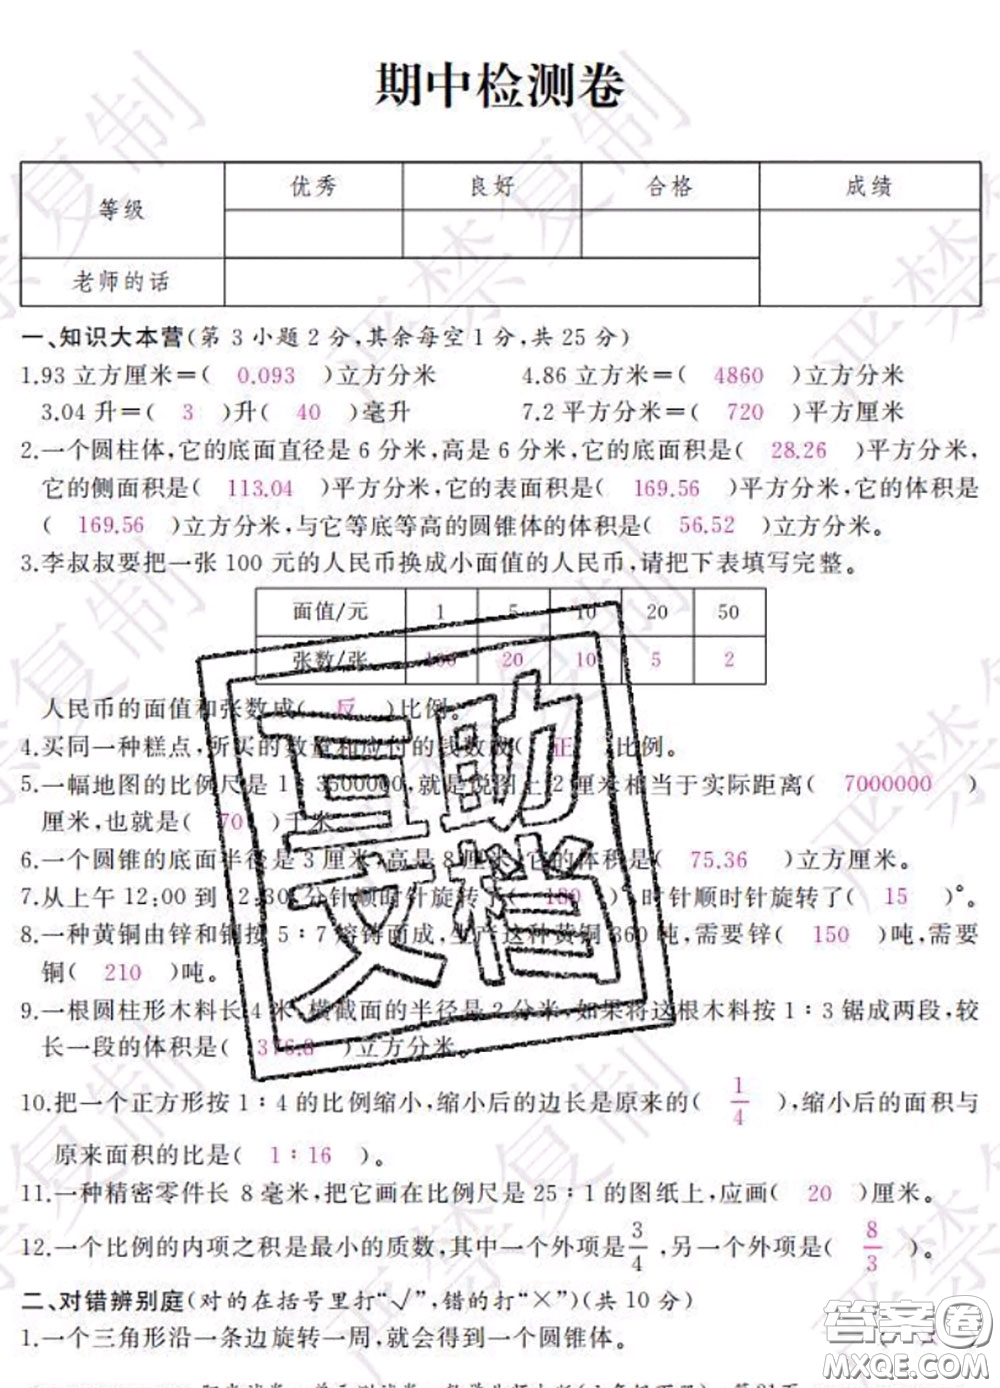 期中检测卷
等级 优秀 良好 合格 成绩
老师的话
一、知识大本营(第 3 小题 2 分,其余每空 1 分,共 25 分)
1.93 立方厘米=( 0.093 )立方分米 4.86 立方米=( 4860 )立方分米
3.04 升=( 3 )升( 40 )毫升 7.2 平方分米=( 720 )平方厘米
2.一个圆柱体,它的底面直径是 6 分米,高是 6 分米,它的底面积是( 28.26 )平方分米,
它的侧面积是( 113.04 )平方分米,它的表面积是( 169.56 )平方分米,它的体积是
( 169.56 )立方分米,与它等底等高的圆锥体的体积是( 56.52 )立方分米。
3.李叔叔要把一张 100 元的人民币换成小面值的人民币,请把下表填写完整。
面值/元 1 5 10 20 50
张数/张 100 20 10 5 2
人民币的面值和张数成( 反 )比例。
4.买同一种糕点,所买的数量和应付的钱数成( 正 )比例。
5.一幅地图的比例尺是 1∶3500000,就是说图上 2 厘米相当于实际距离( 7000000 )
厘米,也就是( 70 )千米。
6.一个圆锥的底面半径是 3 厘米,高是 8 厘米,它的体积是( 75.36 )立方厘米。
7.从上午 12:00 到 12:30,分针顺时针旋转了( 180 )°,时针顺时针旋转了( 15 )°。
8.一种黄铜由锌和铜按 5∶7 熔铸而成,生产这种黄铜 360 吨,需要锌( 150 )吨,需要
铜( 210 )吨。
9.一根圆柱形木料长 4 米,横截面的半径是 2 分米,如果将这根木料按 1∶3 锯成两段,较
长一段的体积是( 376.8 )立方分米。
10.把一个正方形按 1∶4 的比例缩小,缩小后的边长是原来的( 1/4 ),缩小后的面积与
原来面积的比是( 1∶16 )。
11.一种精密零件长 8 毫米,把它画在比例尺是 25∶1 的图纸上,应画( 20 )厘米。
12.一个比例的内项之积是最小的质数,其中一个外项是 3/4 ,另一个外项是( 8/3 )。
二、对错辨别庭(对的在括号里打“√”,错的打“×”)(共 10 分)
1.一个三角形沿一条边旋转一周,就会得到一个圆锥体。
互助
文档
答案圈
MXQE.COM
严禁复制